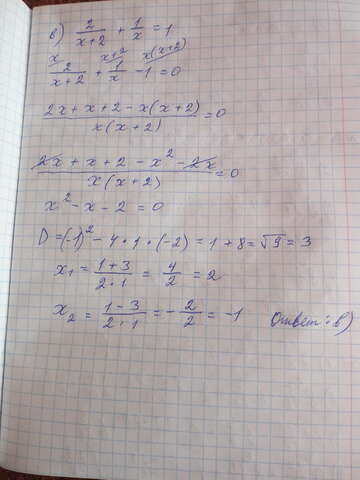 в) 2/(x+2) + 1/x = 1
x x+2 x(x+2)
2/(x+2) + 1/x - 1 = 0
(2x + x + 2 - x(x+2))/(x(x+2)) = 0
(2x + x + 2 - x² - 2x)/(x(x+2)) = 0
x² - x - 2 = 0
D = (-1)² - 4 · 1 · (-2) = 1 + 8 = √9 = 3
x₁ = (1+3)/(2·1) = 4/2 = 2
x₂ = (1-3)/(2·1) = -2/2 = -1
Ответ: в)